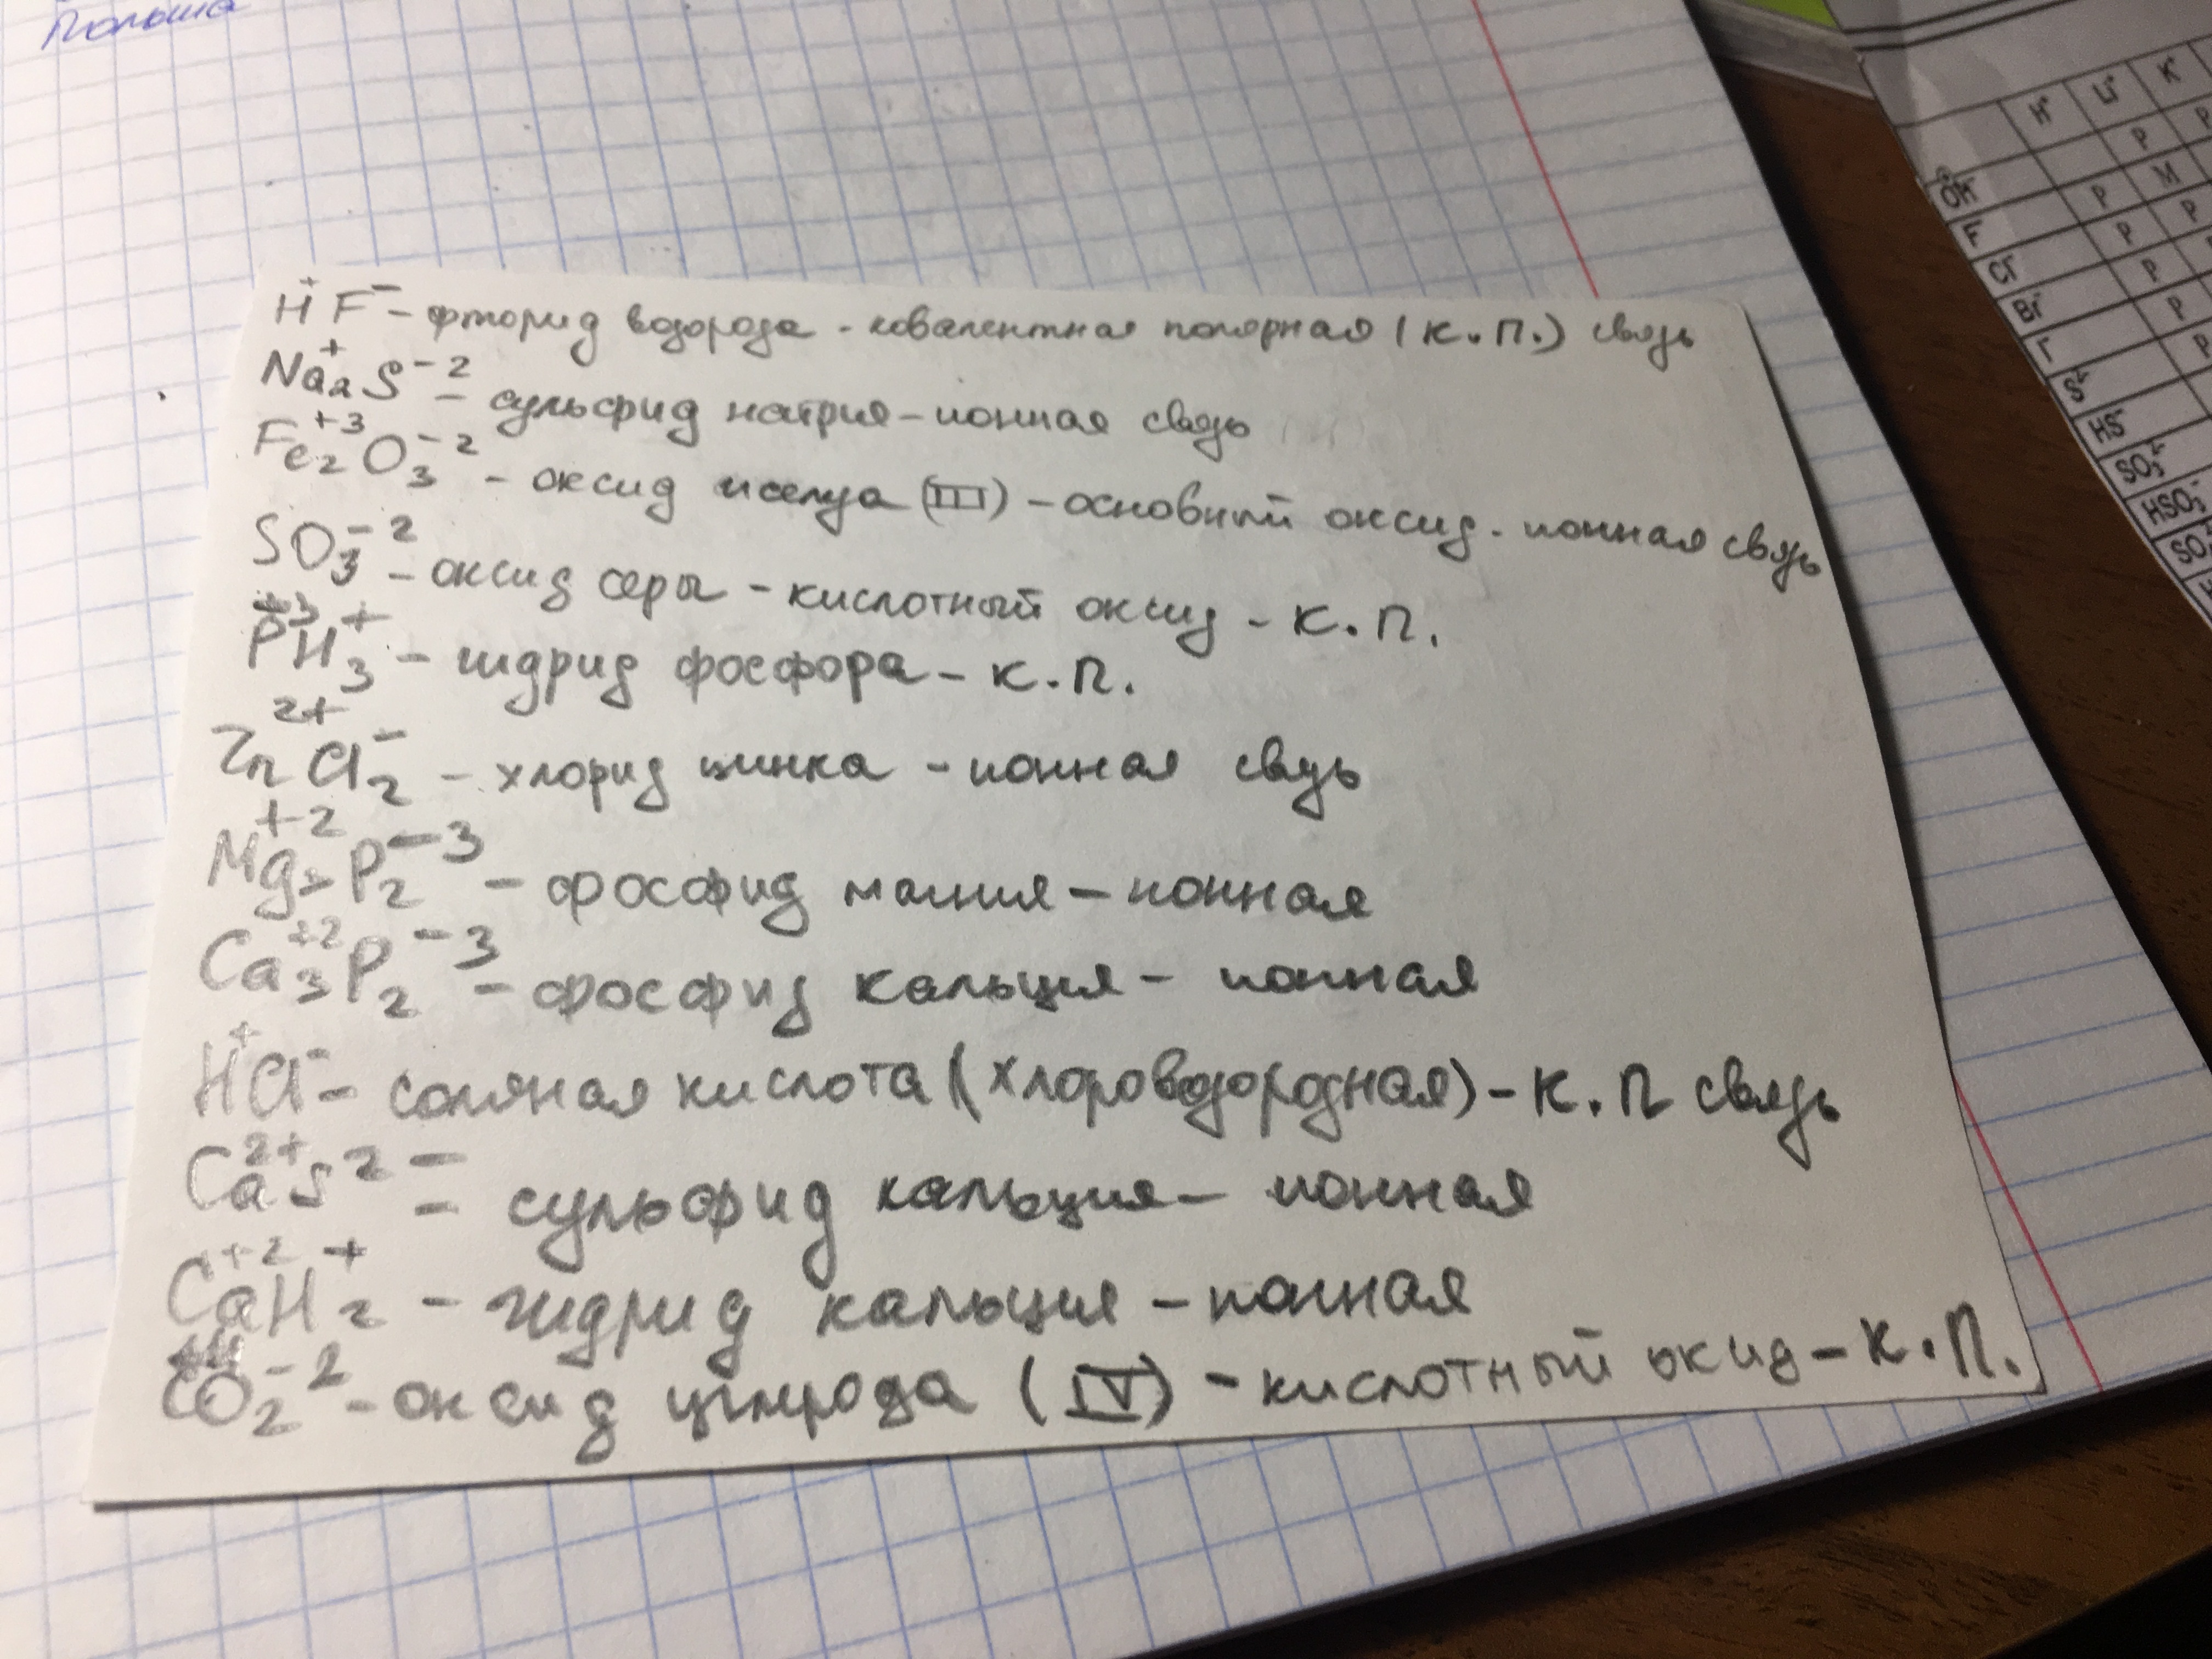 Польша
H⁺F⁻ – фторид водорода - ковалентная полярная (К.П.) связь
Na₂⁺S⁻² – сульфид натрия – ионная связь
Fe₂⁺³O₃⁻² – оксид железа (III) – основный оксид - ионная связь
SO₃⁻² – оксид серы – кислотный оксид – К.П.
P⁺³H₃⁺ – гидрид фосфора – К.П.
Zn²⁺Cl₂⁻ – хлорид цинка – ионная связь
Mg₃⁺²P₂⁻³ – фосфид магния – ионная
Ca₃⁺²P₂⁻³ – фосфид кальция – ионная
H⁺Cl⁻ – соляная кислота (хлороводородная) – К.П связь
Ca²⁺S²⁻ – сульфид кальция – ионная
Ca⁺²H₂⁺ – гидрид кальция – ионная
C⁺⁴O₂⁻² – оксид углерода (IV) – кислотный окид – К.П.
H⁺ Li⁺ K⁺
OH⁻ P P
F⁻ P M P
Cl⁻ P P P
Br⁻ P P
I⁻ P
S²⁻
HS⁻
SO₃²⁻
HSO₃⁻